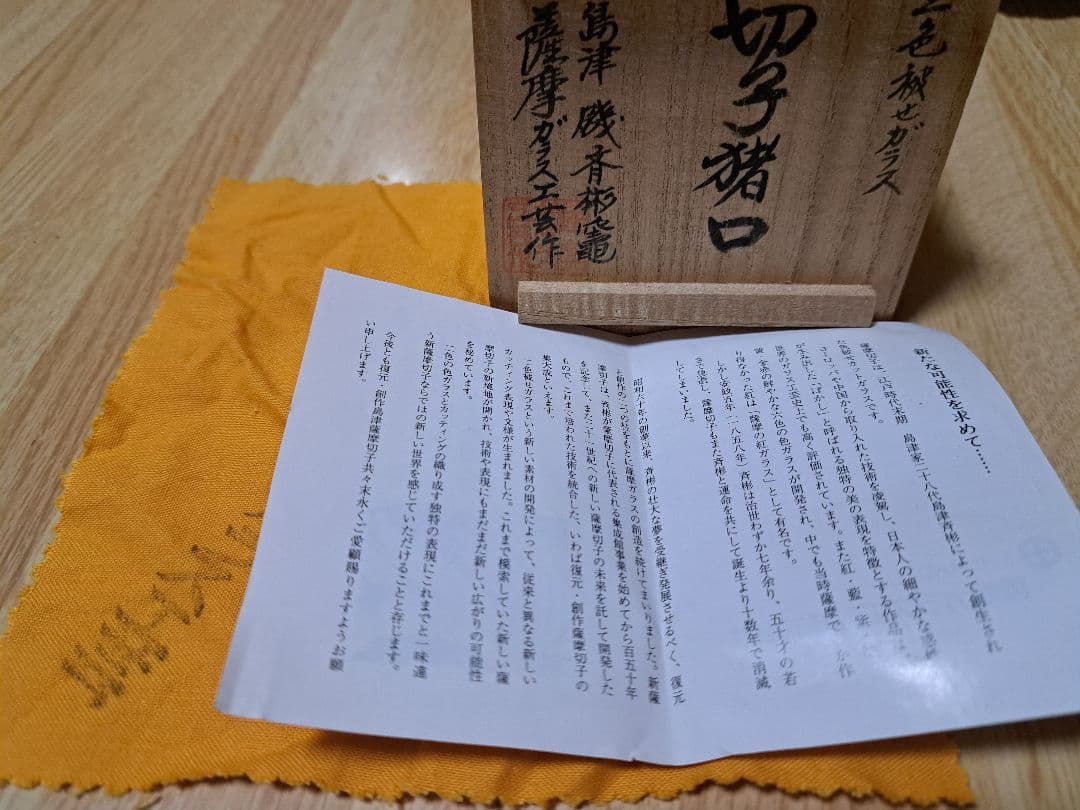 二色被せガラス
切子猪口
島津 磯斉彬竈
薩摩ガラス工芸作
新たな可能性を求めて……
薩摩切子は、江戸時代末期 島津家二十八代島津斉彬によって創生され
た色被せカットガラスです。
ヨーロッパや中国から取り入れた技術を凌駕し、日本人の細やかな
が生み出した「ぼかし」と呼ばれる独特の美の表現を特徴とする作品
世界のガラス工芸史上でも高く評価されています。また紅・藍・紫・
黄・金赤の鮮やかな六色の色ガラスが開発され、中でも当時薩摩で か作
り得なかった紅は「薩摩の紅ガラス」として有名です。
しかし安政五年（一八五八年）斉彬は治世わずか七年余り、五十才の若
さで急逝し、薩摩切子もまた斉彬と運命を共にして誕生より十数年で消滅
してしまいました。
昭和六十年の創業以来、斉彬の壮大な夢を受継ぎ発展させるべく、復元
と創作の二つの柱をもとに薩摩ガラスの創造を続けてまいりました。新薩
摩切子は、斉彬が薩摩切子に代表される集成館事業を始めてから百五十年
を記念して、また二十一世紀への新しい薩摩切子の未来を託して開発した
もので、これまで培われた技術を統合した、いわば復元・創作薩摩切子の
集大成といえます。
二色被せガラスという新しい素材の開発によって、従来と異なる新しい
カッティング表現や文様が生まれました。これまで模索していた新しい薩
摩切子の新境地が開かれ、技術や表現にもまだまだ新しい広がりの可能性
を秘めています。
二色の色ガラスとカッティングの織り成す独特の表現にこれまでと一味違
う新薩摩切子ならではの新しい世界を感じていただけることと存じます。
今後とも復元・創作島津薩摩切子共々末永くご愛顧賜りますようお願
い申し上げます。